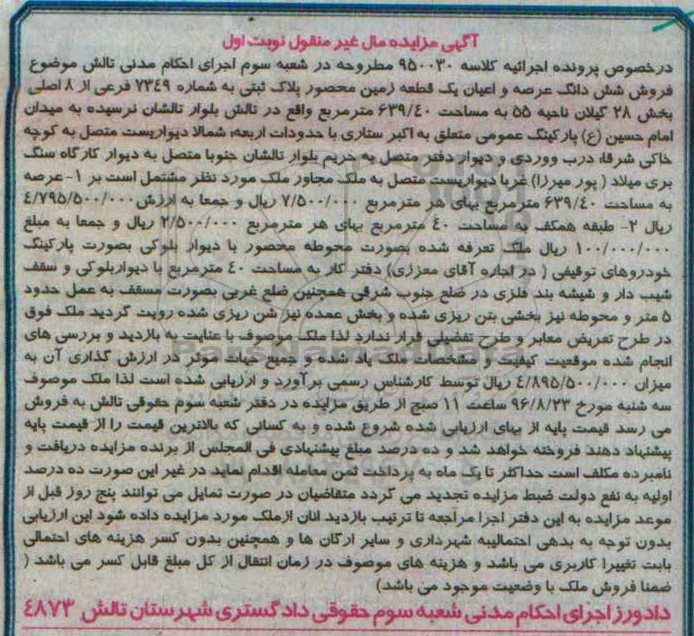 آگهی مزایده مال غیر منقول نوبت اول
درخصوص پرونده اجرائیه کلاسه ۹۵۰۰۳۰ مطروحه در شعبه سوم اجرای احکام مدنی تالش موضوع
فروش شش دانگ عرصه و اعیان یک قطعه زمین محصور پلاک ثبتی به شماره ۷۳٤۹ فرعی از ۸ اصلی
بخش ۲۸ گیلان ناحیه ۵۵ به مساحت ٦۳۹/٤۰ مترمربع واقع در تالش بلوار تالشان نرسیده به میدان
امام حسین (ع) پارکینگ عمومی متعلق به اکبر ستاری با حدودات اربعه: شمالا دیواریست متصل به کوچه
خاکی شرقا، درب ووردی و دیوار دفتر متصل به حریم بلوار تالشان جنوبا متصل به دیوار کارگاه سنگ
بری میلاد ( پور میرزا) غربا دیواریست متصل به ملک مجاور ملک مورد نظر مشتمل است بر ۱- عرصه
به مساحت ٦۳۹/٤۰ مترمربع بهای هر مترمربع ۷/۵۰۰/۰۰۰ ریال و جمعا به ارزش ٤/۷۹۵/۵۰۰/۰۰۰
ریال ۲- طبقه همکف به مساحت ٤۰ مترمربع بهای هر مترمربع ۲/۵۰۰/۰۰۰ ریال و جمعا به مبلغ
۱۰۰/۰۰۰/۰۰۰ ریال ملک تعرفه شده بصورت محوطه محصور با دیوار بلوکی بصورت پارکینگ
خودروهای توقیفی ( در اجاره آقای معززی) دفتر کار به مساحت ٤۰ مترمربع با دیواربلوکی و سقف
شیب دار و شیشه بند فلزی در ضلع جنوب شرقی همچنین ضلع غربی بصورت مسقف به عمل حدود
۵ متر و محوطه نیز بخشی بتن ریزی شده و بخش عمده نیز شن ریزی شده رویت گردید ملک فوق
در طرح تعریض معابر و طرح تفضیلی قرار ندارد لذا ملک موصوف با عنایت به بازدید و بررسی های
انجام شده موقعیت کیفیت و مشخصات ملک یاد شده و جمیع جهات موثر در ارزش گذاری آن به
میزان ٤/۸۹۵/۵۰۰/۰۰۰ ریال توسط کارشناس رسمی برآورد و ارزیابی شده است لذا ملک موصوف
سه شنبه مورخ ۹٦/۸/۲۳ ساعت ۱۱ صبح از طریق مزایده در دفتر شعبه سوم حقوقی تالش به فروش
می رسد قیمت پایه از بهای ارزیابی شده شروع شده و به کسانی که بالاترین قیمت را از قیمت پایه
پیشنهاد دهند فروخته خواهد شد و ده درصد مبلغ پیشنهادی فی المجلس از برنده مزایده دریافت و
نامبرده مکلف است حداکثر تا یک ماه به پرداخت ثمن معامله اقدام نماید در غیر این صورت ده درصد
اولیه به نفع دولت ضبط مزایده تجدید می گردد متقاضیان در صورت تمایل می توانند پنج روز قبل از
موعد مزایده به این دفتر اجرا مراجعه تا ترتیب بازدید انان ازملک مورد مزایده داده شود این ارزیابی
بدون توجه به بدهی احتمالیبه شهرداری و سایر ارگان ها و همچنین بدون کسر هزینه های احتمالی
بابت تغییرا کاربری می باشد و هزینه های موصوف در زمان انتقال از کل مبلغ قابل کسر می باشد (
ضمنا فروش ملک با وضعیت موجود می باشد)
دادورز اجرای احکام مدنی شعبه سوم حقوقی دادگستری شهرستان تالش ٤۸۷۳